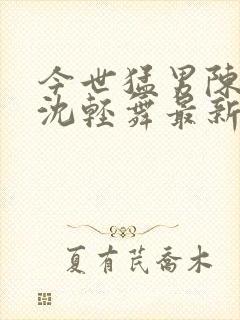 今世猛男陳
沈輕舞最新
夏有芪喬木